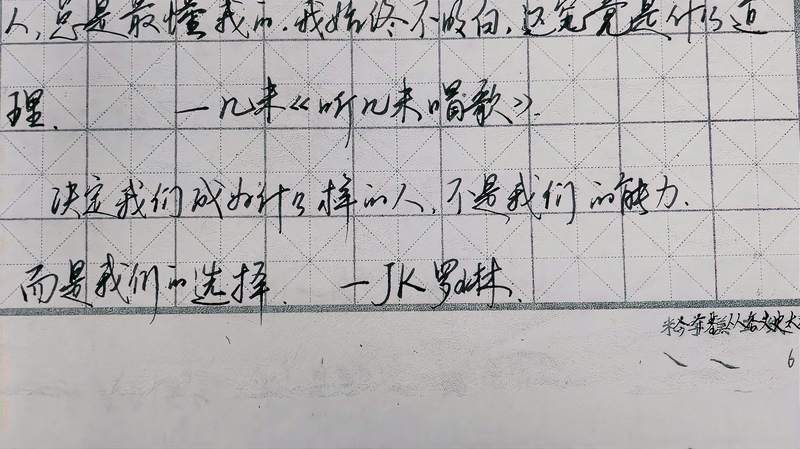 人,总是最懂我的.我始终不明白,这究竟是什么道
理.  —几米《听几米唱歌》.
决定我们成为什么样的人,不是我们的能力.
而是我们的选择.  —JK罗琳.
6